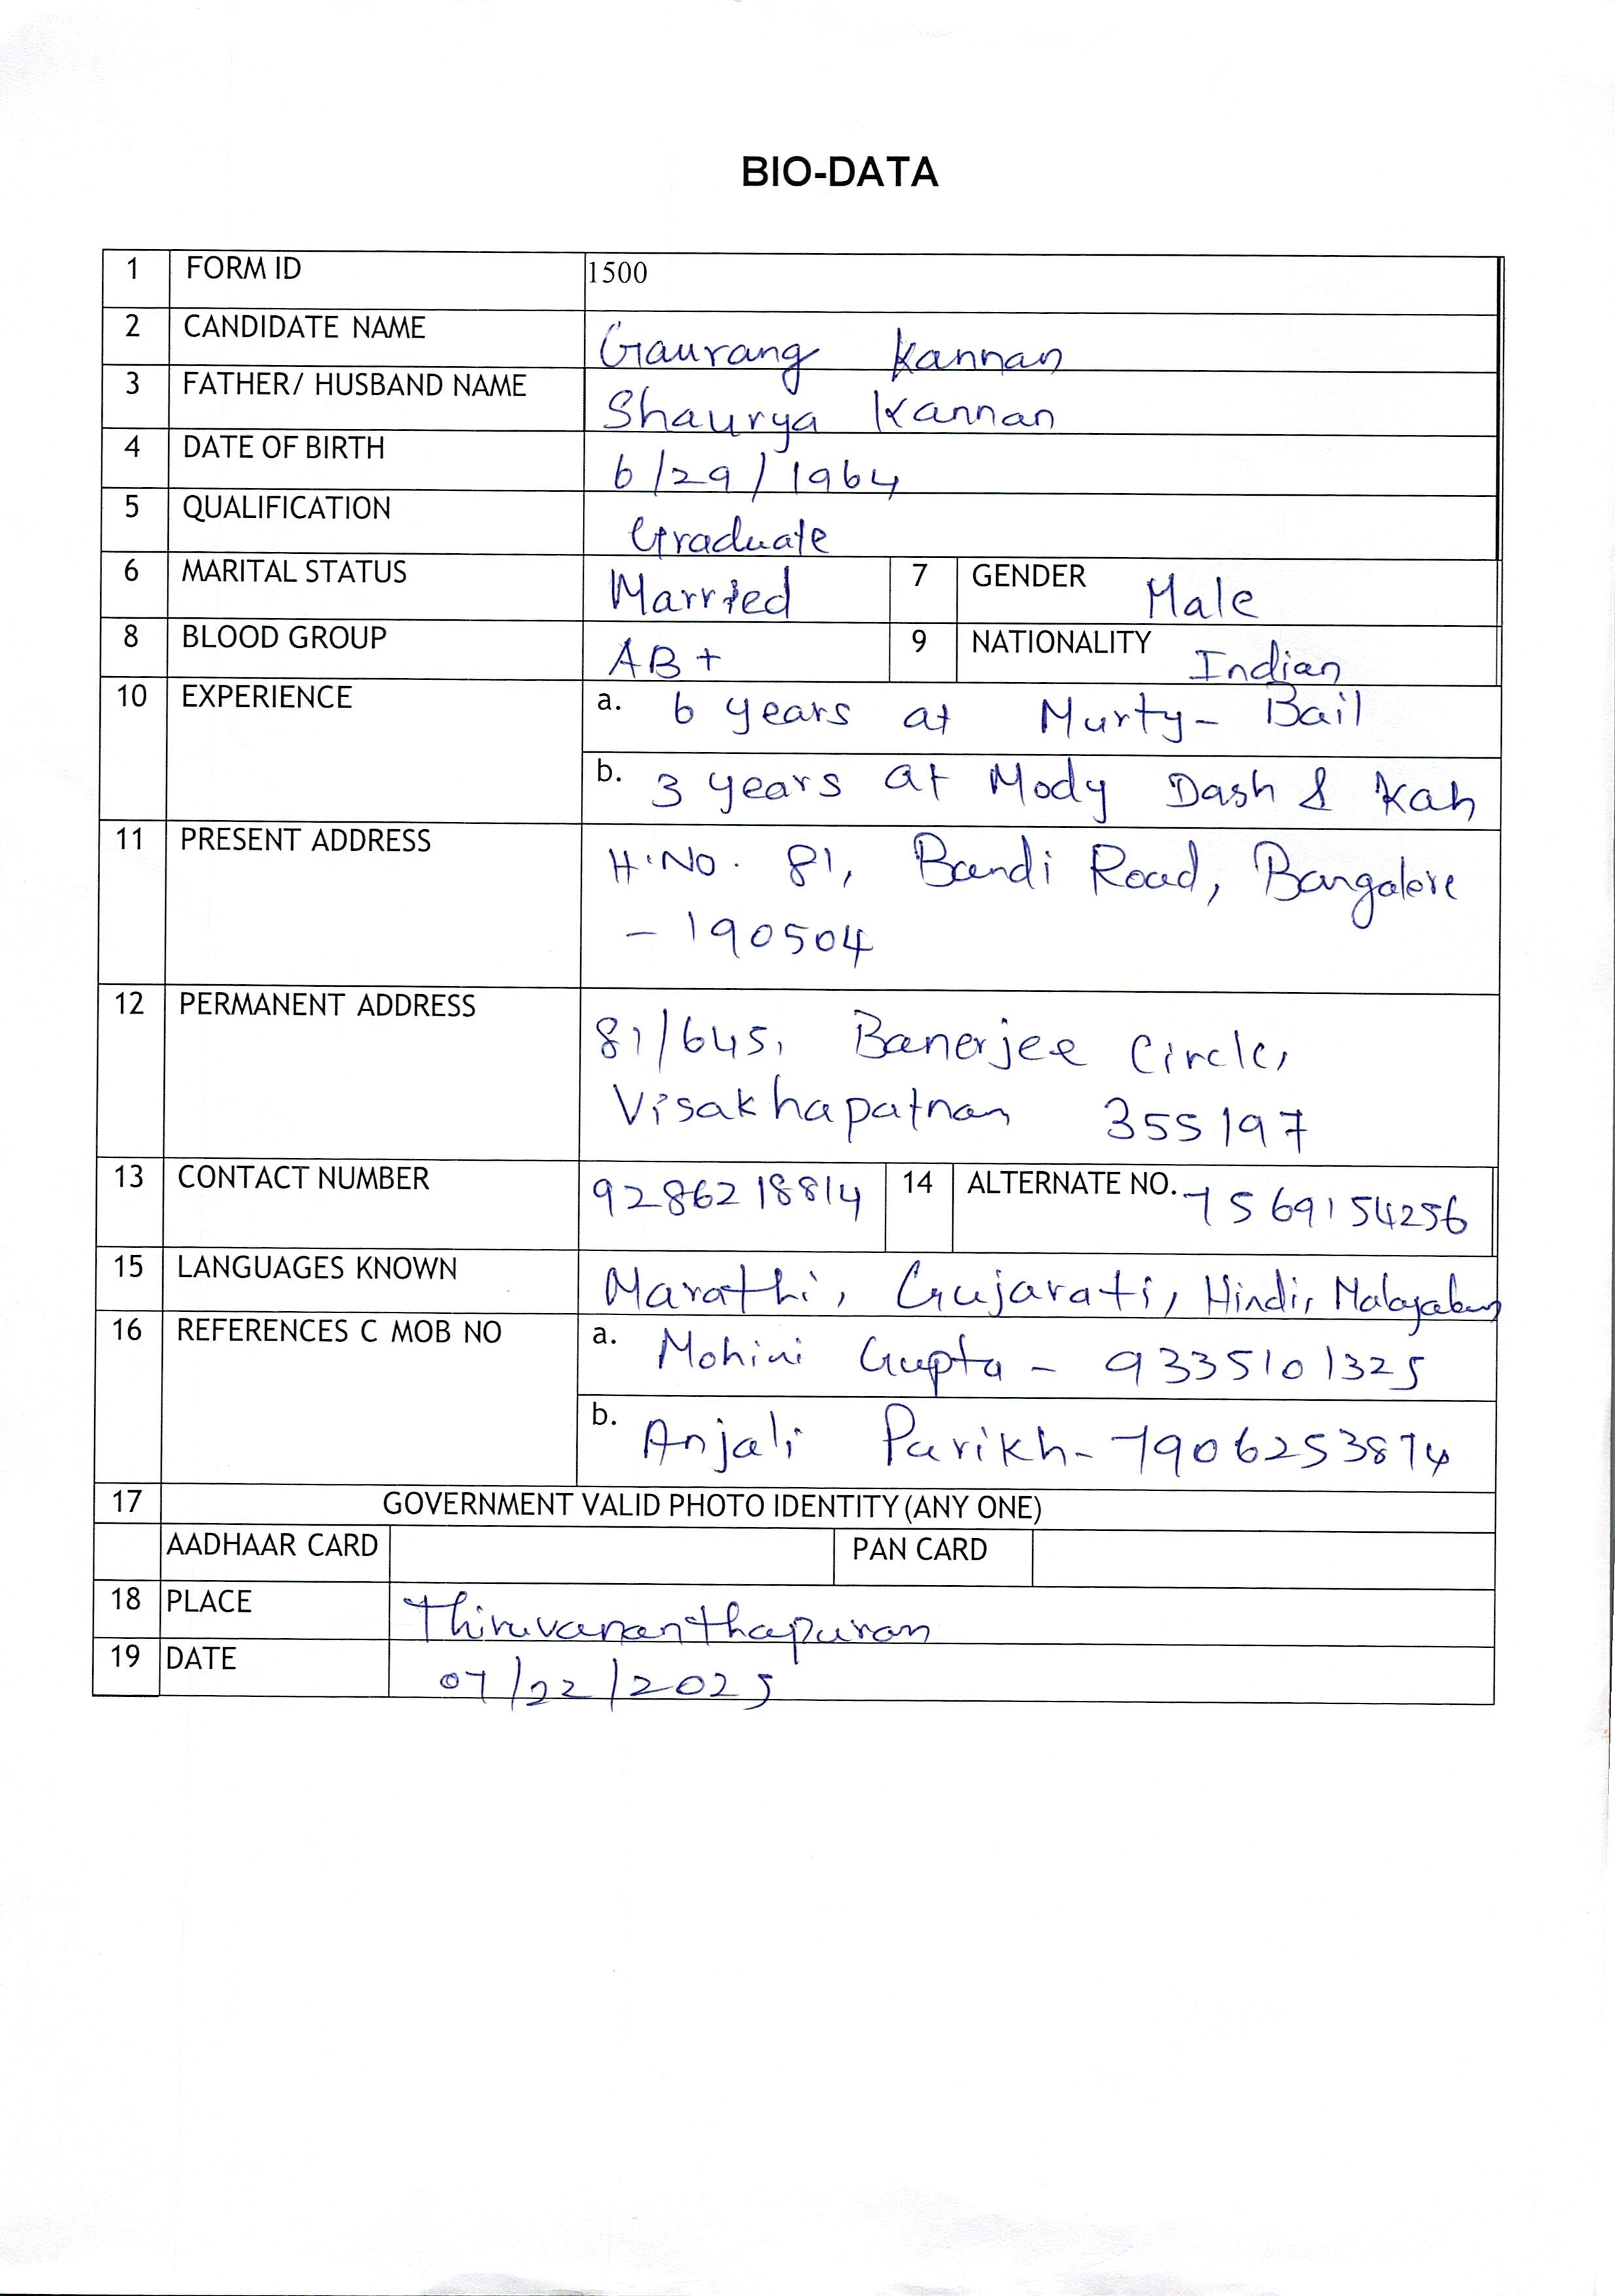 BIO-DATA
1 FORM ID 1500
2 CANDIDATE NAME Gaurang Kannan
3 FATHER/ HUSBAND NAME Shaurya Kannan
4 DATE OF BIRTH 6/29/1964
5 QUALIFICATION Graduate
6 MARITAL STATUS Married 7 GENDER Male
8 BLOOD GROUP AB+ 9 NATIONALITY Indian
10 EXPERIENCE a. 6 years at Murty- Bail
b. 3 years at Mody Dash & Kah
11 PRESENT ADDRESS H.No. 81, Bandi Road, Bangalore
- 190504
12 PERMANENT ADDRESS 81/645, Banerjee Circle,
Visakhapatnam 355197
13 CONTACT NUMBER 9286218814 14 ALTERNATE NO. 7569154256
15 LANGUAGES KNOWN Marathi, Gujarati, Hindi, Malayalam
16 REFERENCES C MOB NO a. Mohini Gupta - 9335101325
b. Anjali Parikh- 7906253874
17 GOVERNMENT VALID PHOTO IDENTITY (ANY ONE)
AADHAAR CARD PAN CARD
18 PLACE Thiruvananthapuram
19 DATE 07/22/2025